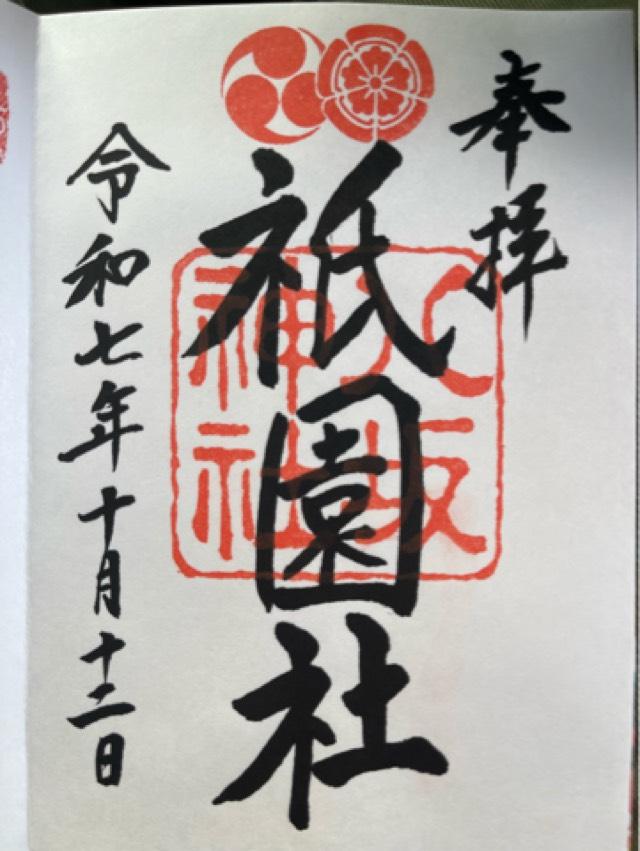 奉拝
祇園社
八坂
神社
令和七年十月十二日